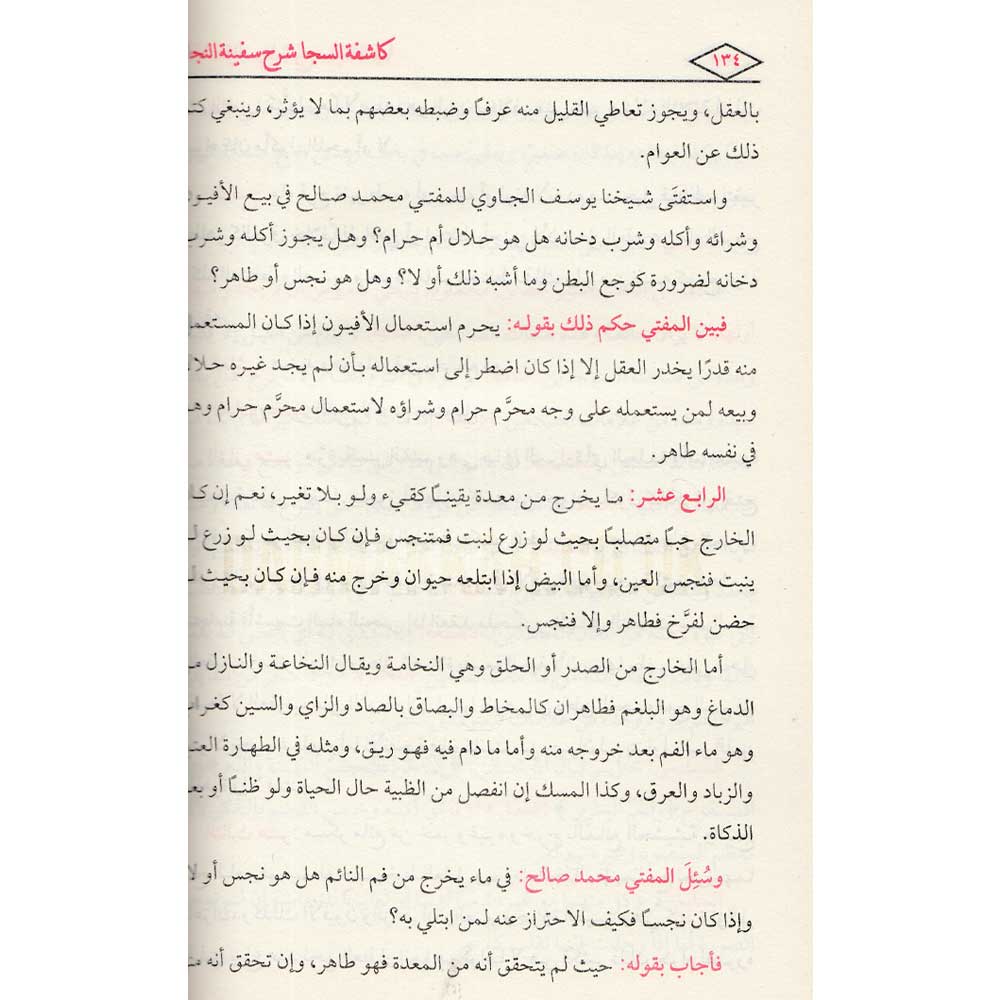 ١٣٤
كاشفة السجا شرح سفينة النجـ
بالعقل، ويجوز تعاطي القليل منه عرفًا وضبطه بعضهم بما لا يؤثر، وينبغي كتـ
ذلك عن العوام.
واستفتَى شيخنا يوسف الجاوي للمفتي محمد صالح في بيع الأفيو
وشرائه وأكله وشرب دخانه هل هو حلال أم حرام؟ وهل يجوز أكله وشرب
دخانه لضرورة كوجع البطن وما أشبه ذلك أو لا؟ وهل هو نجس أو طاهر؟
فبين المفتي حكم ذلك بقوله: يحرم استعمال الأفيون إذا كان المستعمـ
منه قدرًا يخدر العقل إلا إذا كان اضطر إلى استعماله بأن لم يجد غيره حلا
وبيعه لمن يستعمله على وجه محرَّم حرام وشراؤه لاستعمال محرَّم حرام وهـ
في نفسه طاهر.
الرابع عشر: ما يخرج من معدة يقينًا كقيء ولو بلا تغير، نعم إن كا
الخارج حبًا متصلبًا بحيث لو زرع لنبت فمتنجس فإن كان بحيث لو زرع لـ
ينبت فنجس العين، وأما البيض إذا ابتلعه حيوان وخرج منه فإن كان بحيث لـ
حضن لفرَّخ فطاهر وإلا فنجس.
أما الخارج من الصدر أو الحلق وهي النخامة ويقال النخاعة والنازل مـ
الدماغ وهو البلغم فطاهران كالمخاط والبصاق بالصاد والزاي والسين كغراب
وهو ماء الفم بعد خروجه منه وأما ما دام فيه فهو ريق، ومثله في الطهارة العنـ
والزباد والعرق، وكذا المسك إن انفصل من الظبية حال الحياة ولو ظنًا أو بعـ
الذكاة.
وسُئِلَ المفتي محمد صالح: في ماء يخرج من فم النائم هل هو نجس أو لا
وإذا كان نجسًا فكيف الاحتراز عنه لمن ابتلي به؟
فأجاب بقوله: حيث لم يتحقق أنه من المعدة فهو طاهر، وإن تحقق أنه مـ